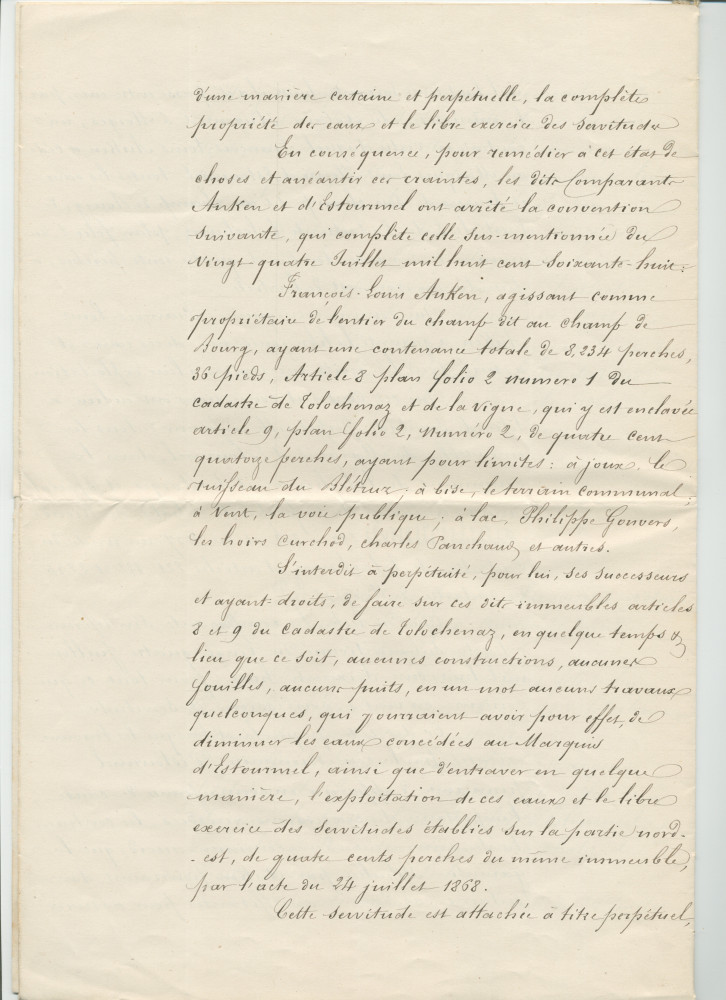 d'une manière certaine et perpétuelle, la complète
propriété des eaux et le libre exercice des servitudes
En conséquence, pour remédier à cet état de
choses et anéantir ces craintes, les dits Comparants
Anken et d'Estourmel ont arrêté la convention
suivante, qui complète celle sus-mentionnée du
Vingt-quatre Juillet mil huit cent soixante-huit:
François-Louis Anken, agissant comme
propriétaire de l'entier du champ dit au champ de
Bourg, ayant une contenance totale de 8,234 perches,
36 pieds, Article 8 plan folio 2 numero 1 du
cadastre de Tolochenaz et de la Vigne, qui y est enclavée
article 9, plan folio 2, Numéro 2, de quatre cent
quatorze perches, ayant pour limites: à joux, le
ruisseau du Blétruz; à bise, le terrain communal;
à Vent, la voie publique; à lac, Philippe Gonvers,
les hoirs Curchod, Charles Panchaud et autres.
S'interdit à perpétuité, pour lui, ses successeurs
et ayant-droits, de faire sur ces dits immeubles articles
8 et 9 du Cadastre de Tolochenaz, en quelque temps &
lieu que ce soit, aucunes constructions, aucunes
fouilles, aucuns puits, en un mot aucuns travaux
quelconques, qui pourraient avoir pour effet, de
diminuer les eaux concédées au Marquis
d'Estourmel, ainsi que d'entraver en quelque
manière, l'exploitation de ces eaux et le libre
exercice des servitudes établies sur la partie nord-
-est, de quatre cents perches du même immeuble,
par l'acte du 24 juillet 1868.
Cette servitude est attachée à titre perpétuel,